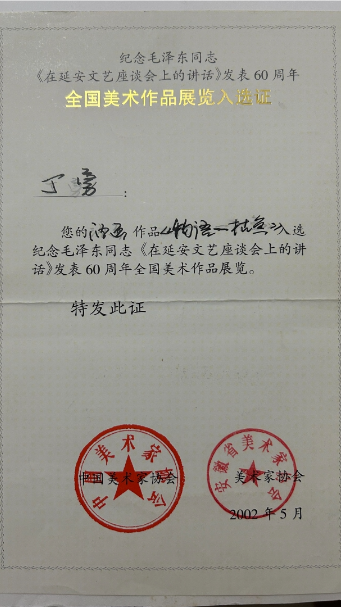 纪念毛泽东同志
《在延安文艺座谈会上的讲话》发表 60 周年
全国美术作品展览入选证
丁 勇 :
您的油画作品《物语一拈花》入选
纪念毛泽东同志《在延安文艺座谈会上的讲
话》发表 60 周年全国美术作品展览。
特发此证
中国美术家协会
中国美术家协会
安徽省美术家协会
美术家协会
2002 年 5 月